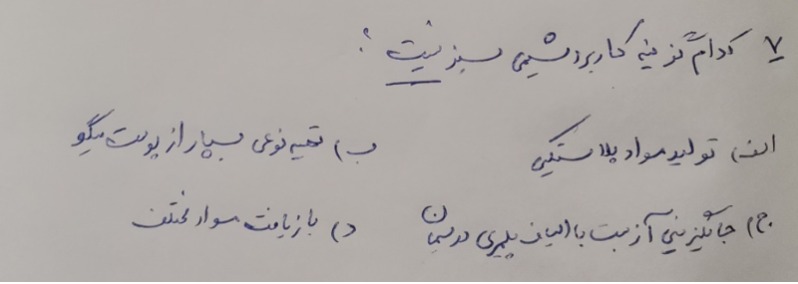 ۷ کدام گزینه کاربرد شیمی سبز نیست ؟
الف) تولید مواد پلاستیکی ب) تهیه نوعی بسپار از پوست میگو
ج) جایگزینی آزبست با الیاف پلیمری در سیمان د) بازیافت مواد مختلف